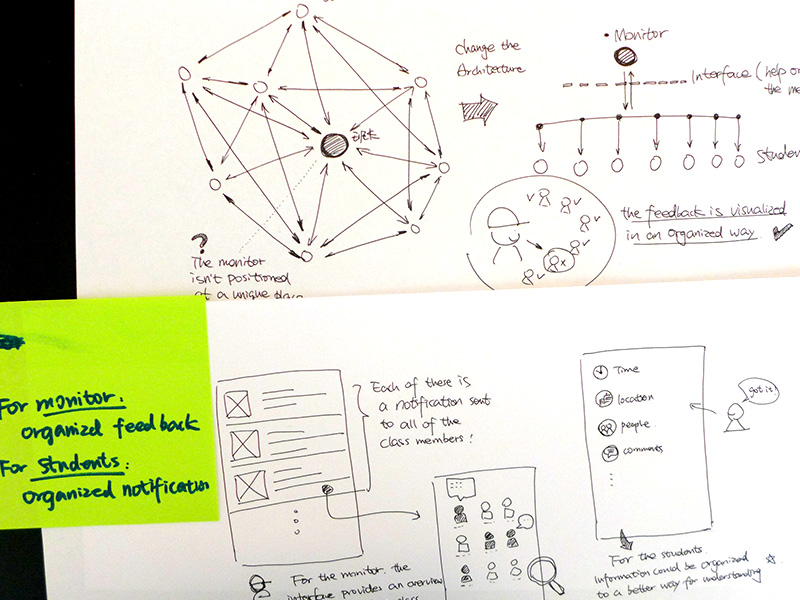 班长
?
The monitor
isn't positioned
at a unique place
change the
Architecture
• Monitor
Interface (help or
the me
Studen
the feedback is visualized
in an organized way.
For monitor:
organized feedback
For students:
organized notification
Each of these is
a notification sent
to all of the
class members!
For the monitor. the
interface provides an overview
class
Time
location
people.
comments
got it!
For the students.
information could be organized
to a better way for understanding